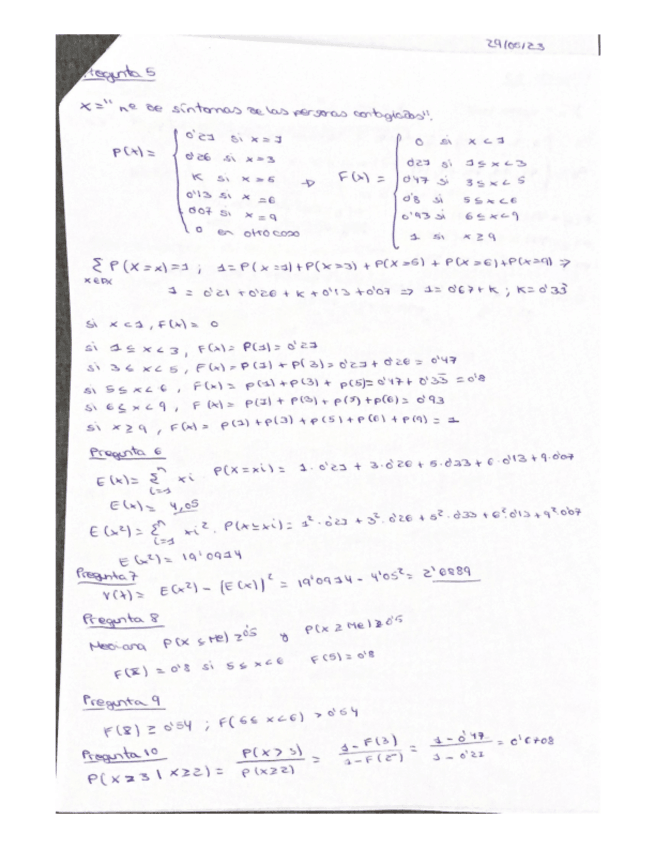 29/05/23
Pregunta 5
X = "nº de síntomas de las personas contagiadas".
P(x) = { 0'21 si x = 1
0'26 si x = 3
K si x = 5
0'13 si x = 6
0'07 si x = 9
0 en otro caso
→ F(x) = { 0 si x < 1
0'21 si 1 ≤ x < 3
0'47 si 3 ≤ x < 5
0'8 si 5 ≤ x < 6
0'93 si 6 ≤ x < 9
1 si x ≥ 9
Σ P(X=x) = 1 ; 1 = P(X=1) + P(X=3) + P(X=5) + P(X=6) + P(X=9) ⇒
1 = 0'21 + 0'26 + K + 0'13 + 0'07 ⇒ 1 = 0'67 + K ; K = 0'33
si x < 1, F(x) = 0
si 1 ≤ x < 3, F(x) = P(1) = 0'21
si 3 ≤ x < 5, F(x) = P(1) + P(3) = 0'21 + 0'26 = 0'47
si 5 ≤ x < 6, F(x) = P(1) + P(3) + P(5) = 0'47 + 0'33 = 0'8
si 6 ≤ x < 9, F(x) = P(1) + P(3) + P(5) + P(6) = 0'93
si x ≥ 9, F(x) = P(1) + P(3) + P(5) + P(6) + P(9) = 1
Pregunta 6
E(x) = Σ xi P(X=xi) = 1·0'21 + 3·0'26 + 5·0'33 + 6·0'13 + 9·0'07
E(x) = 4,05
E(x²) = Σ xi² · P(X=xi) = 1²·0'21 + 3²·0'26 + 5²·0'33 + 6²·0'13 + 9²·0'07
E(x²) = 19'0914
Pregunta 7
V(x) = E(x²) - (E(x))² = 19'0914 - 4'05² = 2'6889
Pregunta 8
Mediana P(X ≤ Me) ≥ 0'5 y P(X ≥ Me) ≥ 0'5
F(x) = 0'8 si 5 ≤ x < 6 F(5) = 0'8
Pregunta 9
F(x) ≥ 0'54 ; F(5 ≤ x < 6) > 0'54
Pregunta 10
P(X ≥ 3 | X ≥ 2) = P(X > 3) / P(X ≥ 2) = 1 - F(3) / 1 - F(2) = 1 - 0'47 / 1 - 0'21 = 0'6708